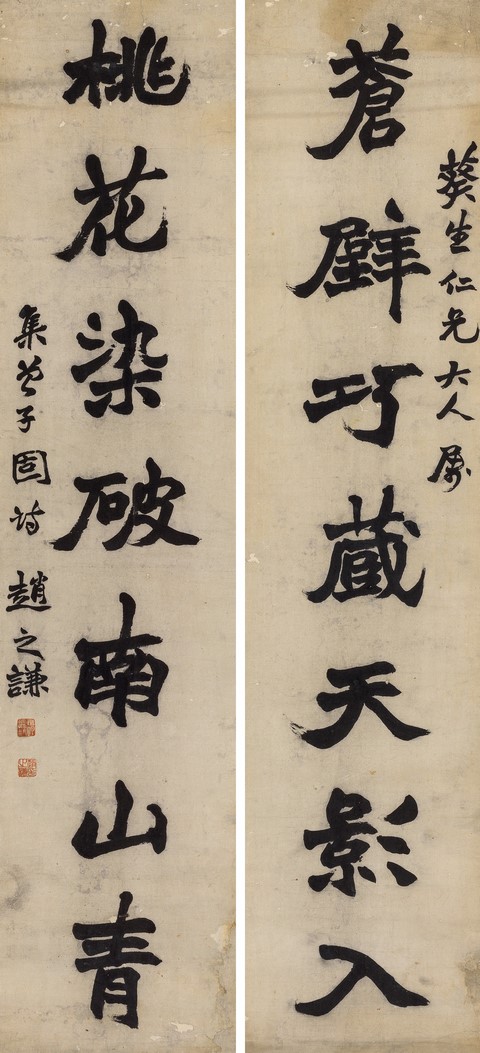 葵生仁兄大人屬
蒼壁巧藏天影入
桃花染破南山青
集曾子固詩 趙之謙